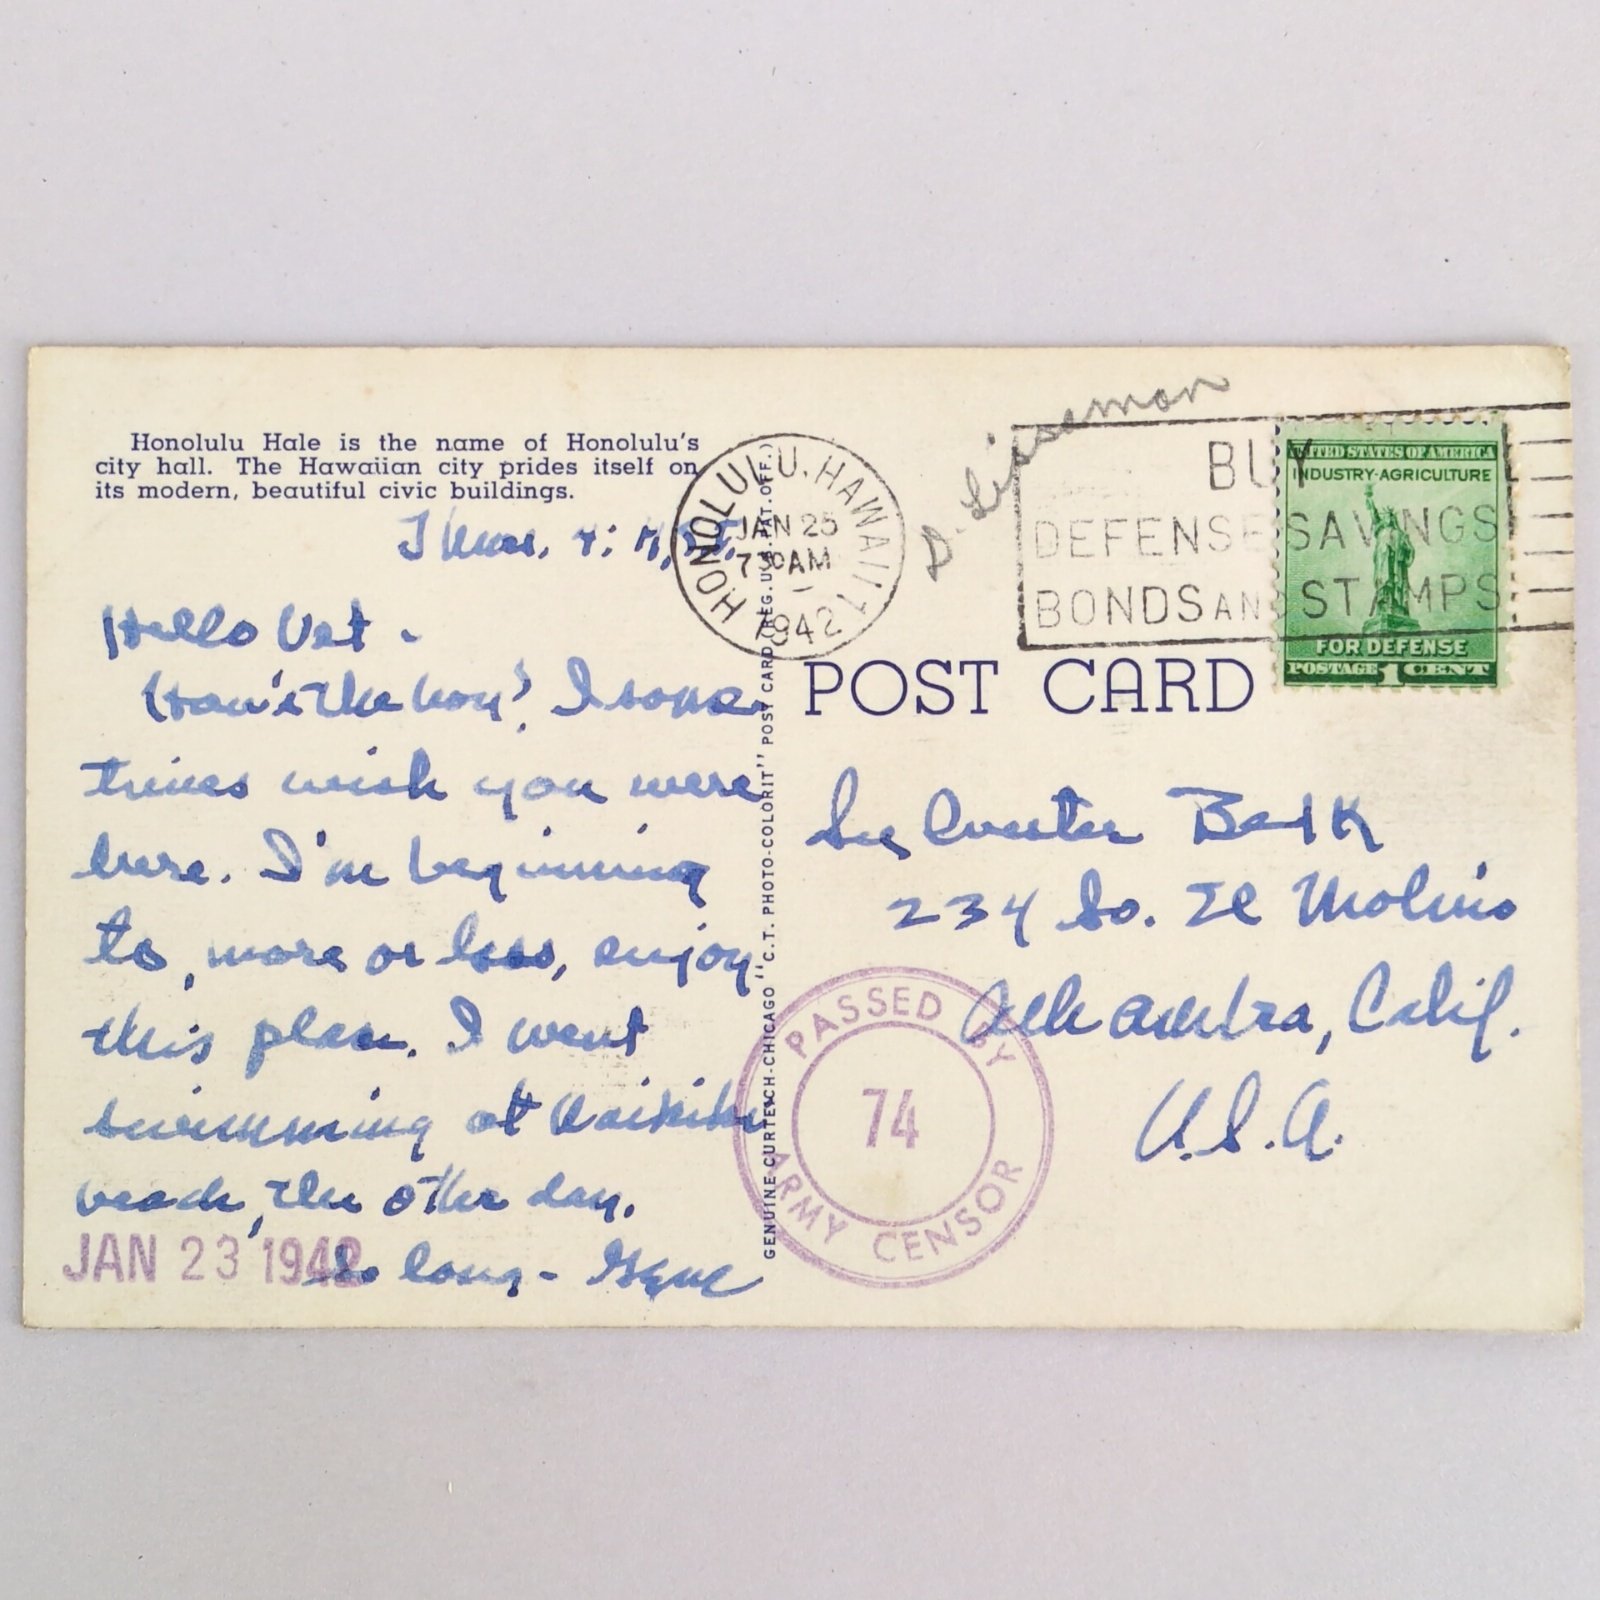 Honolulu Hale is the name of Honolulu's
city hall. The Hawaiian city prides itself on
its modern, beautiful civic buildings.
Thurs.
Hello Vet -
How's the boy? I some
times wish you were
here. I'm beginning
to, more or less, enjoy
this place. I went
swimming at Waikiki
beach, the other day.
So long - Gene
JAN 23 1942
GENUINE CURTEICH-CHICAGO "C.T. PHOTO-COLORIT" POST CARD (REG. U.S. PAT. OFF.)
HONOLULU, HAWAII
JAN 25
730AM
1942
BUY
DEFENSE SAVINGS
BONDS AND STAMPS
UNITED STATES OF AMERICA
INDUSTRY-AGRICULTURE
FOR DEFENSE
POSTAGE 1 CENT
POST CARD
Sylvester
234 So. El Molino
Alhambra, Calif.
U.S.A.
PASSED BY
74
ARMY CENSOR